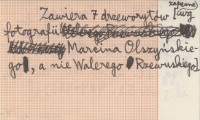 zapewne
Zawiera 7 drzeworytów [wg
fotografii
Marcina Olszyńskie-
go], a nie Walerego Rzewuskiego]